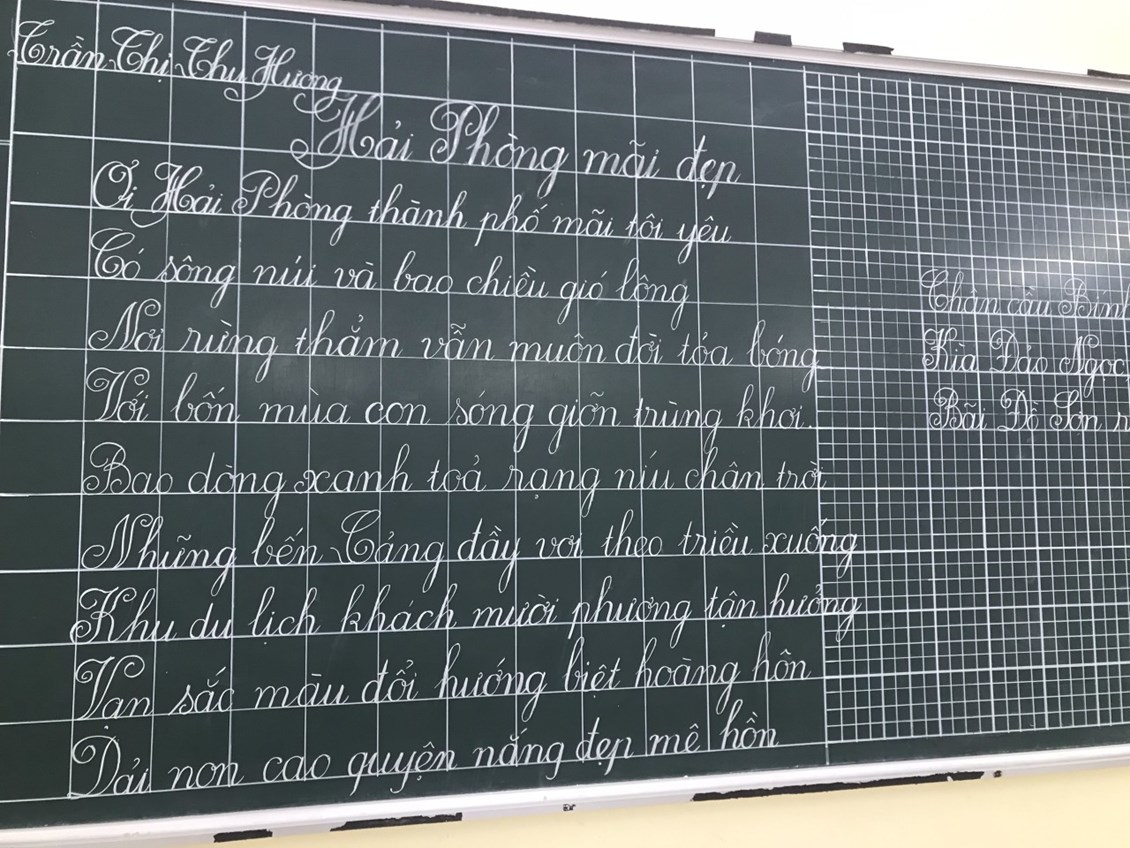 Trần Thị Thu Hương
Hải Phòng mãi đẹp
Ơi Hải Phòng thành phố mãi tôi yêu
Có sông núi và bao chiều gió lộng
Nơi rừng thẳm vẫn muôn đời tỏa bóng
Với bốn mùa con sóng giỡn trùng khơi.
Bao dòng xanh toả rạng níu chân trời
Những bến Cảng đầy vơi theo triều xuống
Khu du lịch khách mười phương tận hưởng
Vạn sắc màu đổi hướng biệt hoàng hôn
Dải non cao quyện nắng đẹp mê hồn
Chân cầu Bính
Kìa Đảo Ngọc
Bãi Đồ Sơn